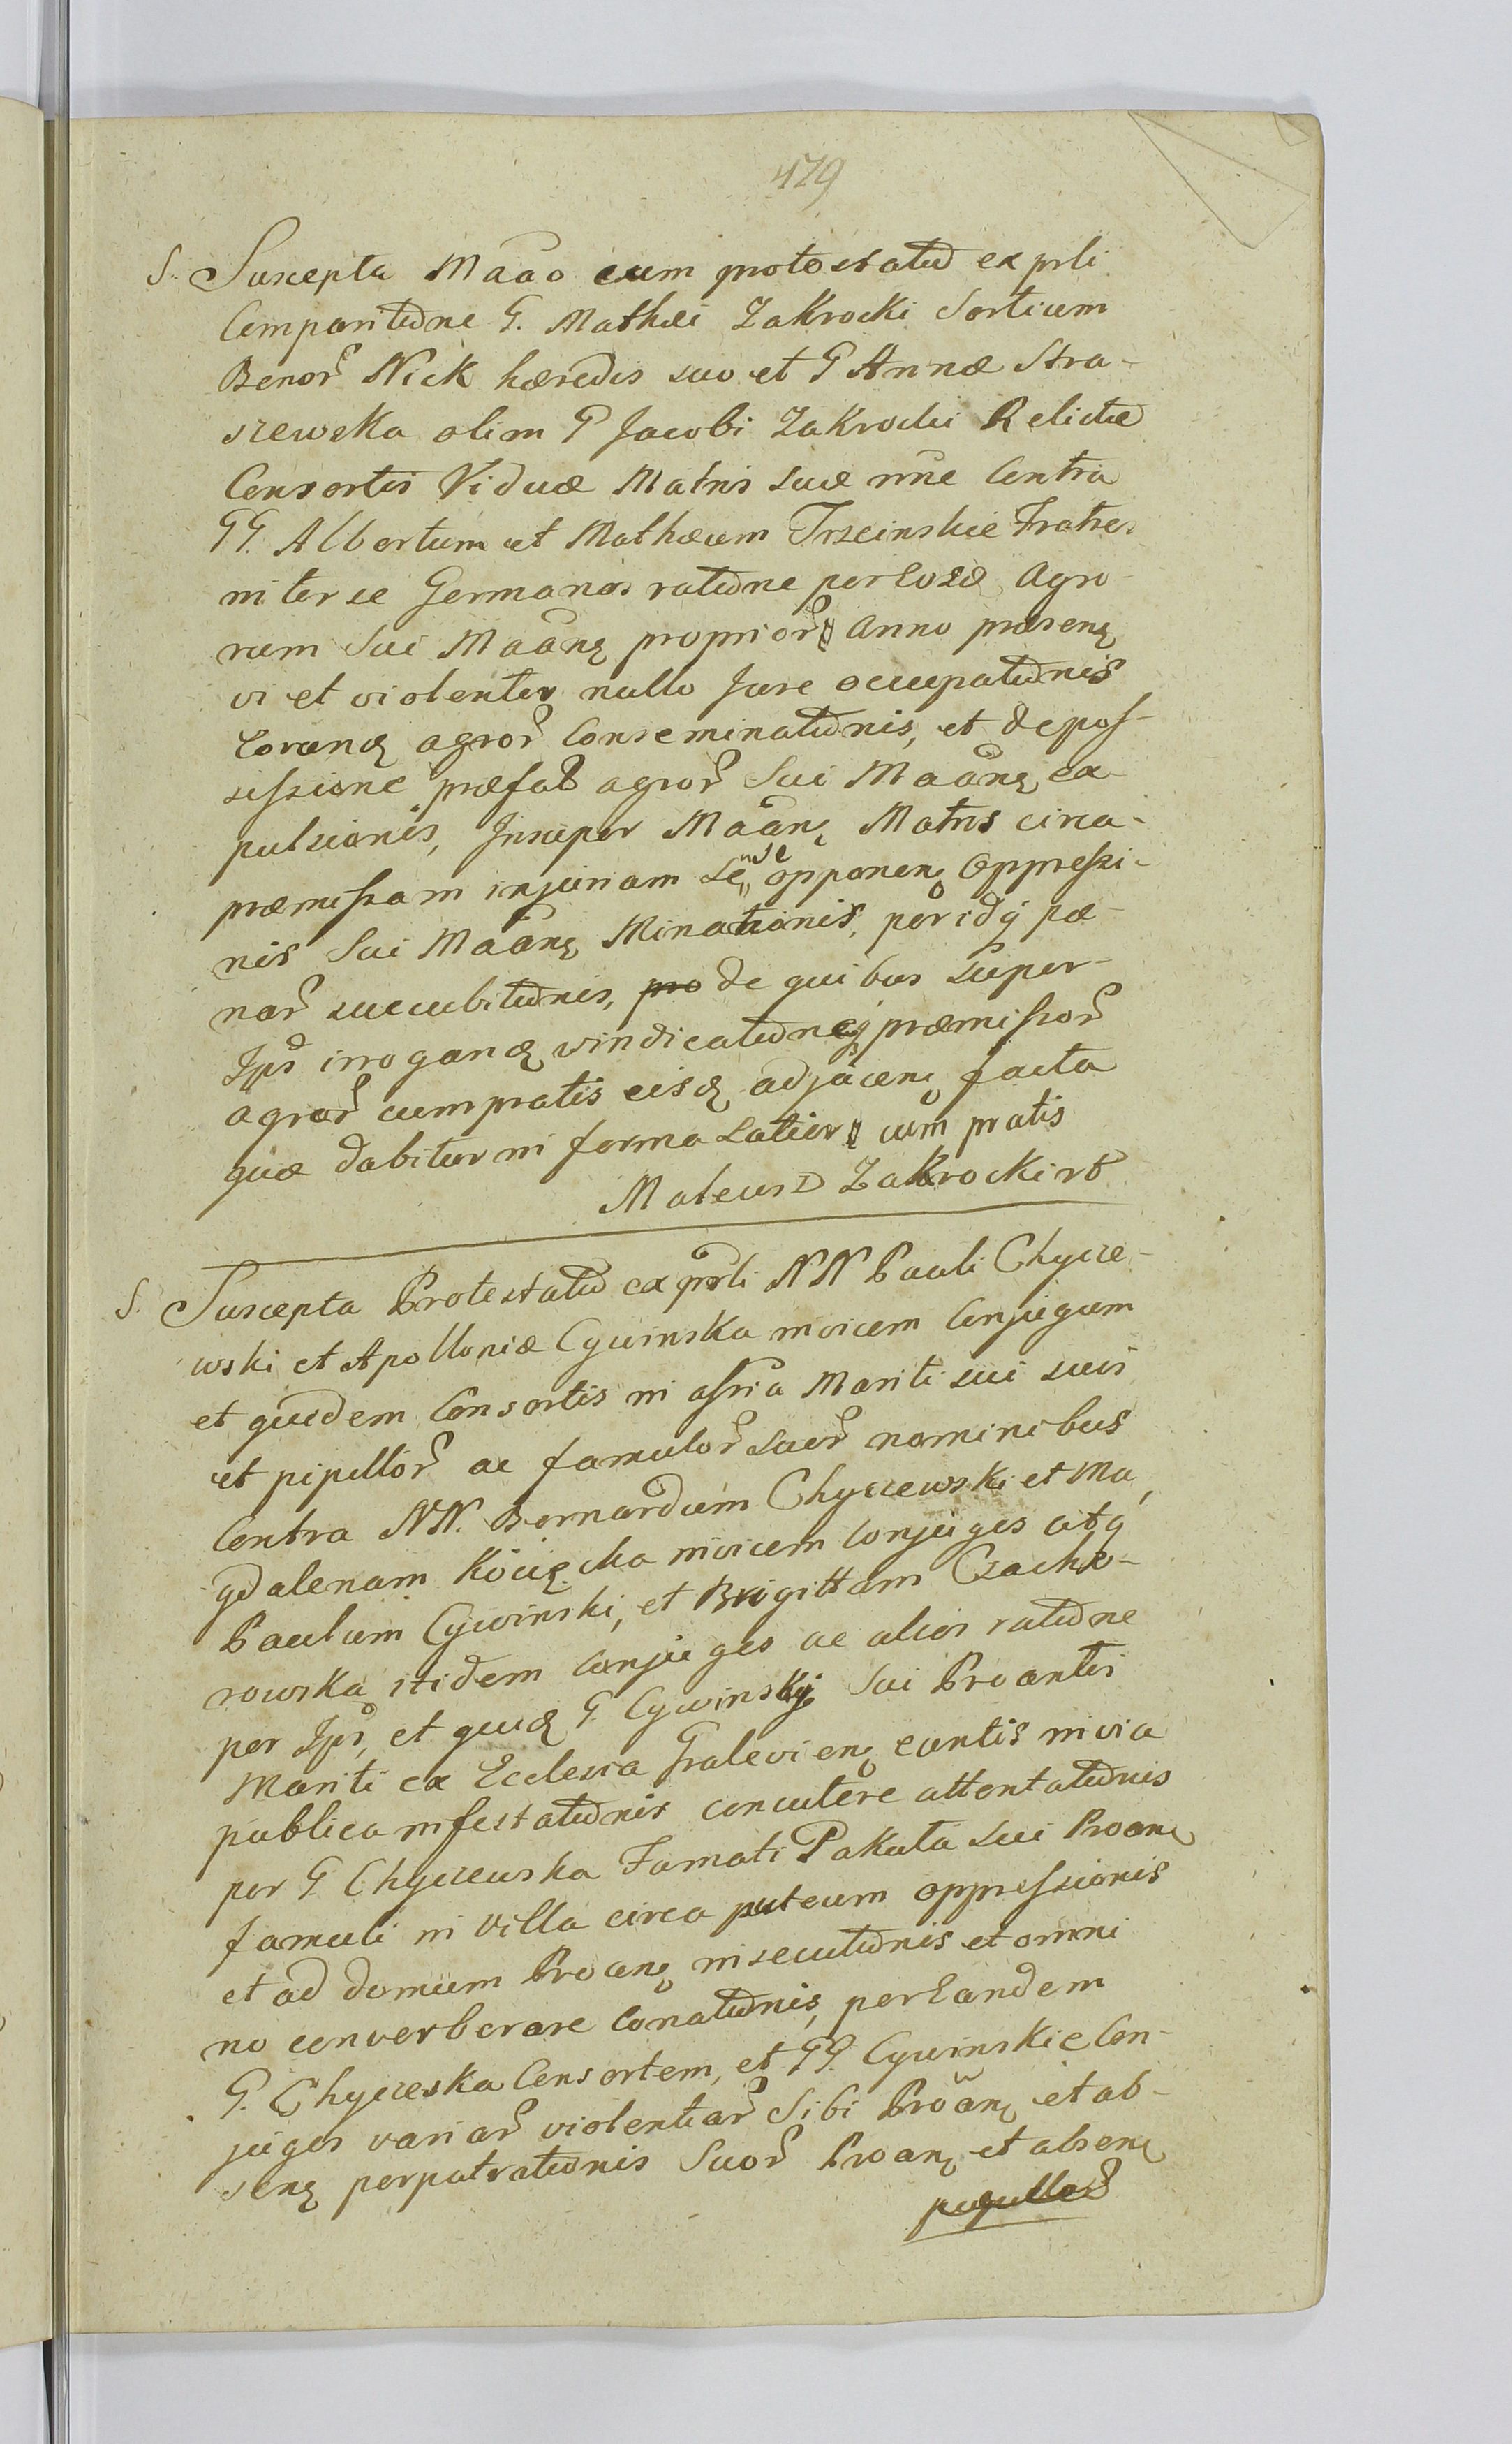 479
S. Suscepta Maão cum protestatiõ ex prli
Comparitiõne G. Mathæi Zakrocki Sortium
Bonor̃ Nick hæredis suo et G Annæ Stra-
szewska olim G Jacobi Zakrocki Relictæ
Consortis Viduæ Matris suæ nñe Contra
GG. Albertum et Mathæum Trzcinskie Fratres
inter se Germanos ratiõne per Eosd. Agro-
rum Sui Maãnę proprior̃ Anno præsenę
vi et violenter nullo Jure occupatiõnis
Eorunđ agror̃ Conseminatiõnis, et de pos-
sessione præfat agror̃ Sui Maãnę ex-
pulsionis, Insuper Maãnę Matris circa
præmissam injuriam Se opponenę Oppressi-
nis Sui Maãnę Minationis, per idq́ pæ-
nar̃ succubitiõnis, pro de quibus super-
Ips irroganđ vindicatiõneq́ præmissor̃
agror̃ cum pratis eisđ adjacenę facta
quæ dabitur in forma latiori cum pratis
Mateusz Zakrocki
S. Suscepta Protestatiõ ex prli NN Pauli Chycze-
wski et Apolloniæ Cywinska invicem Conjugum
et quidem Consortis in assña Mariti sui suis
et pipillor̃ ac famulor̃ suor̃ nominibus
Contra NN. Bernardum Chyczewski et Ma,
gdalenam Kocięcka invicem conjuges atq́
Paulum Cywinski, et Brigittam Czacho-
rowska itidem conjuges ac alios ratiõne
per Ips, et quiđ G. Cywinskij Sui Proantis
Mariti ex Ecclesia Gralevienę euntis in via
publica infestatiõnis concutere attentatiõnis
per G. Chyczewska Famati Pakuta sui Proanę
famuli in Villa circa puteum oppressionis
et ad domum Proanę insecutiõnis et omni
no converberare Conatiõnis, per Eandem
G. Chyczeska Consortem, et GG. Cywinskie Con-
juges variar̃ violentiar̃ Sibi Proãnę et ab-
senę perpatratiõnis Suor̃ Proanę et absenę
pupullor̃